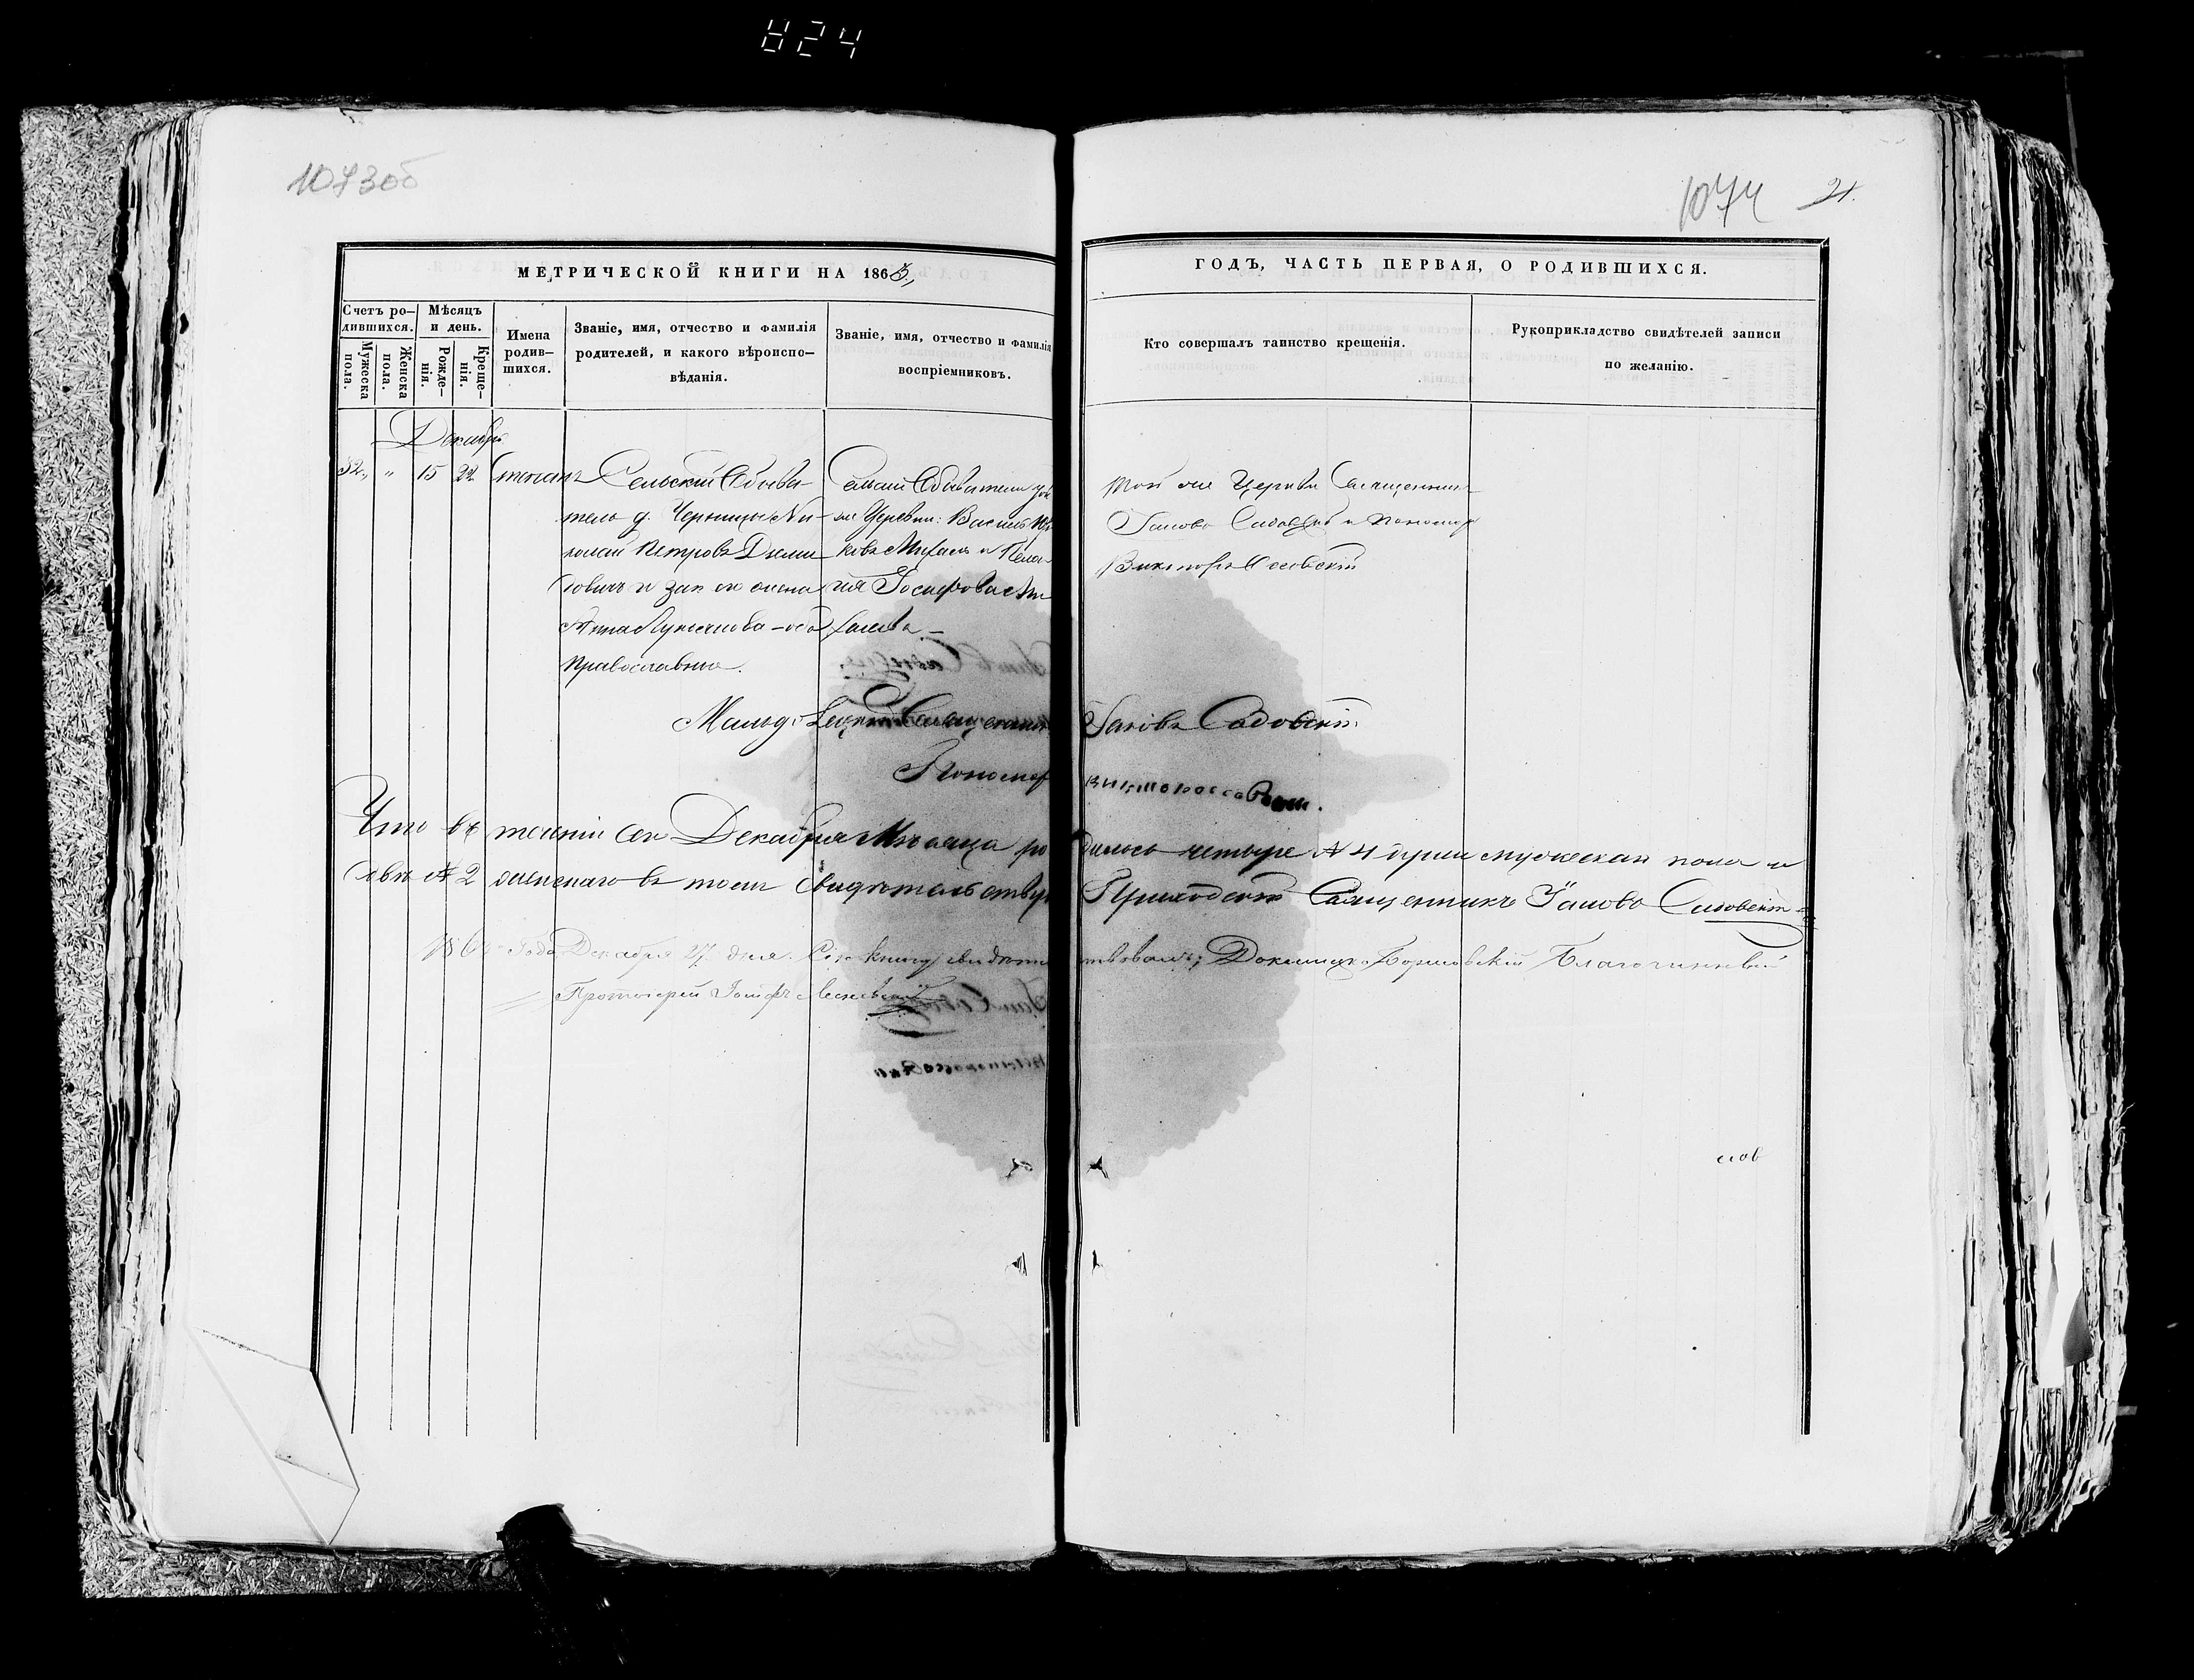 824
1073об
1074 21.
МЕТРИЧЕСКОЙ КНИГИ НА 1863,
ГОДЪ, ЧАСТЬ ПЕРВАЯ, О РОДИВШИХСЯ.
Счетъ ро-
дившихся.
Мужеска
пола.
Женска
пола.
Мѣсяцъ
и день.
Рожде-
нія.
Креще-
нія.
Имена
родив-
шихся.
Званіе, имя, отчество и фамилія
родителей, и какого вѣроиспо-
вѣданія.
Званіе, имя, отчество и фамилія
воспріемниковъ.
Кто совершалъ таинство крещенія.
Рукоприкладство свидѣтелей записи
по желанію.
Декабрь
52 " 15 22 Стефанъ
Сельскій Обыва-
тель д. Черницы Ни-
колай Петровъ Дземи
довичъ и зак. его жена
Анна Лукьянова - оба
православные.
деревни: Василь
Михаля и Пела-
гія Іосифова
Той же Церкви Священникъ
Іаковъ Садовскій и Пономарь
Викторъ Соовскій
Священникъ Іаковъ Садовскій.
Пономарь
Что въ теченіи сего Декабря Мѣсяца родилось четыре № 4 души мужеска пола и
двѣ № 2 женскаго въ томъ свидѣтельствую Приходскій Священникъ Іаковъ Садовскій
Года Декабря 27 дня. Сію книгу свидѣтельствовалъ; Докшицко-Борисовскій Благочинный
Протоіерей Іосифъ